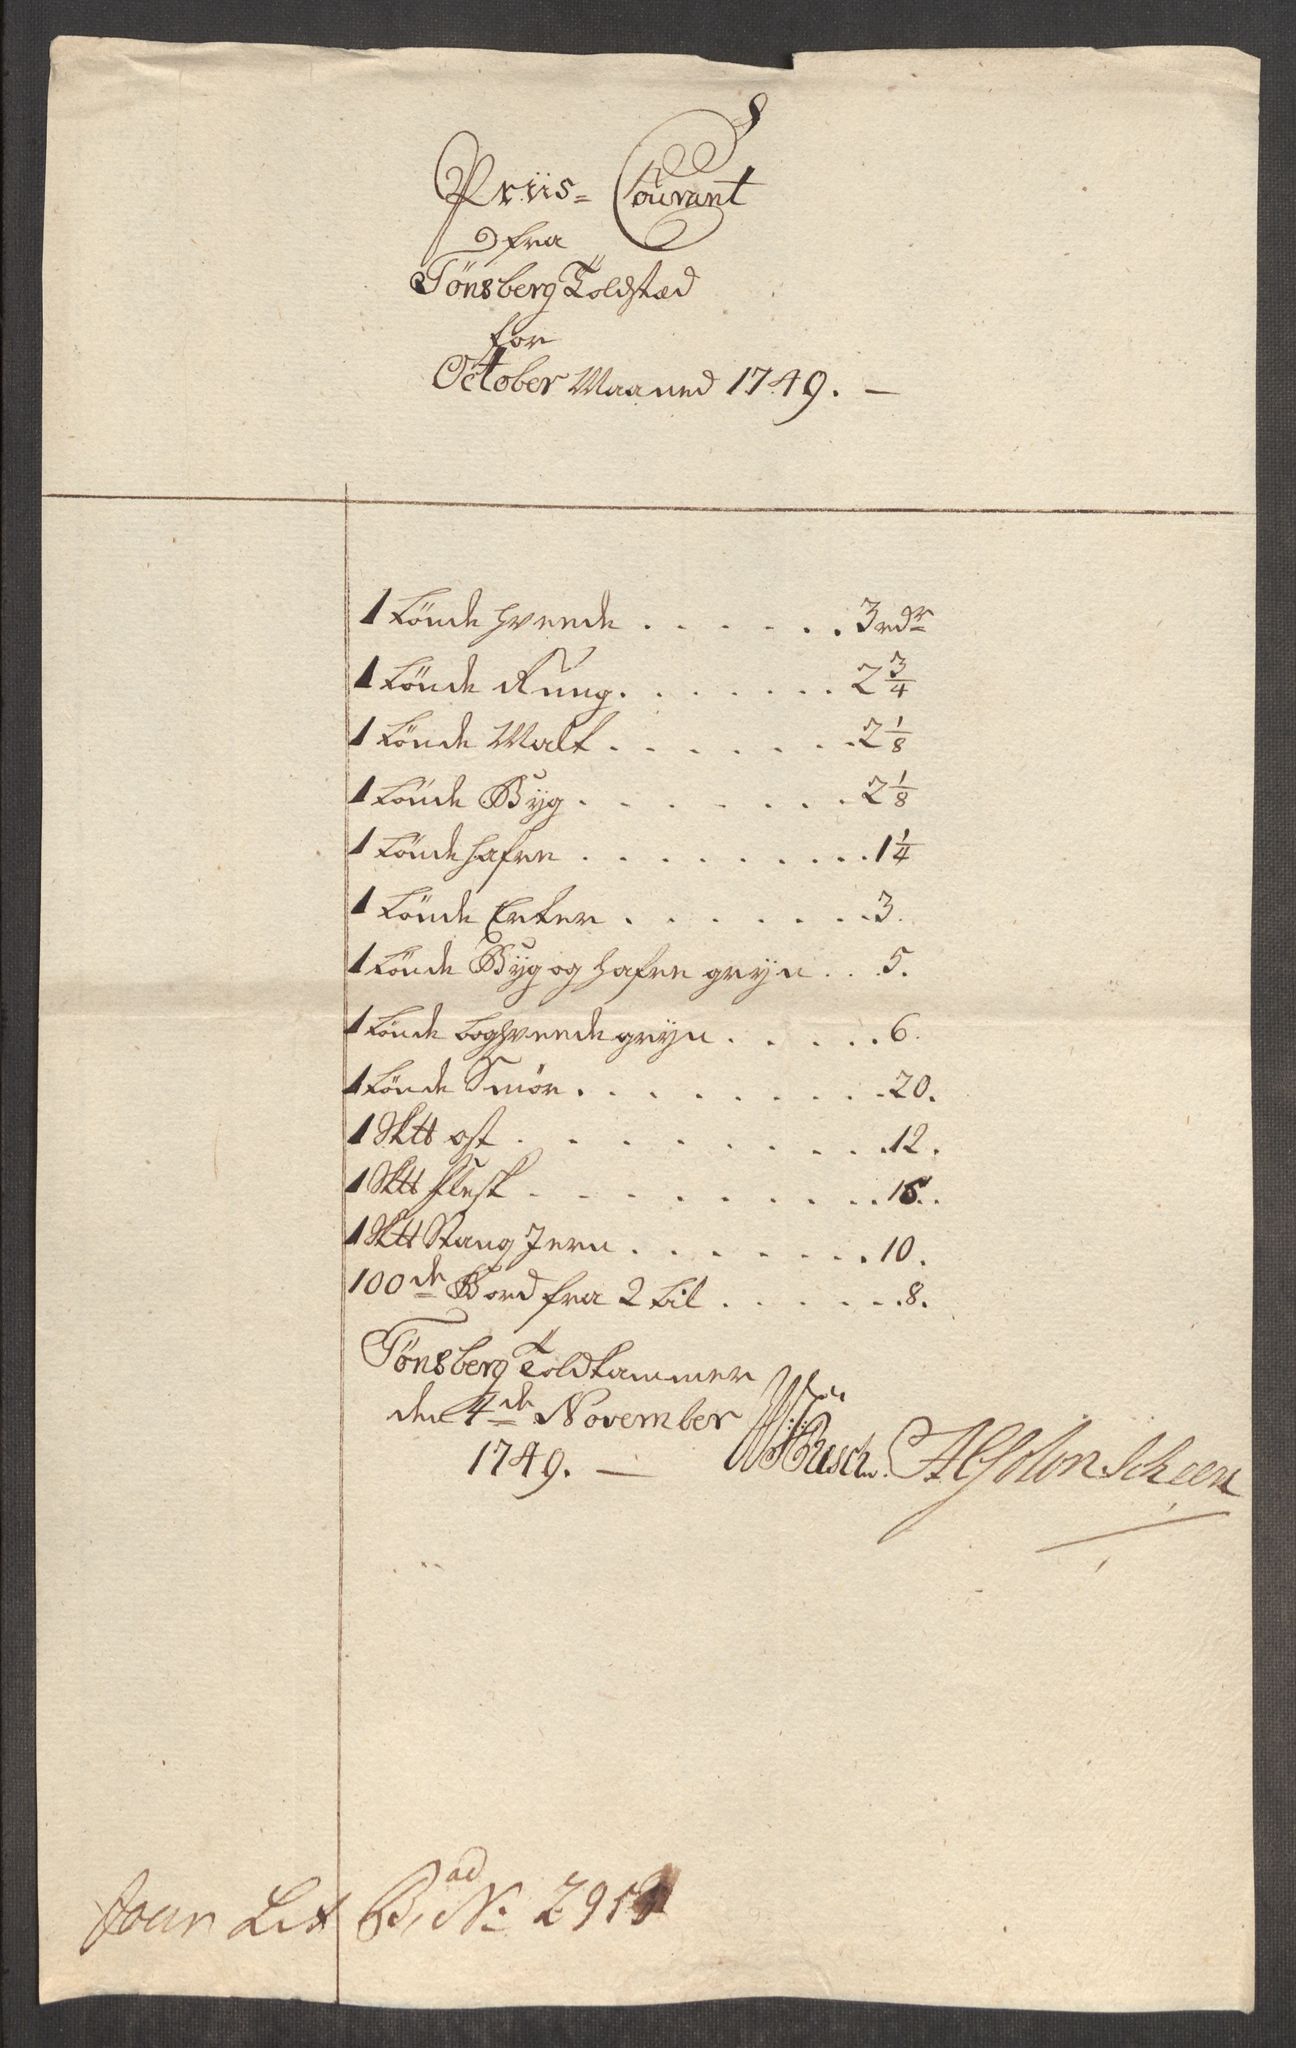 Priis- Courant
fra
Tønsberg Toldstæd
for
October Maaned 1749. —
1 tønde hveede . . . . . . 3 rdr
1 tønde Rúug . . . . . . . 2 3/4
1 tønde Malt . . . . . . . 2 1/8
1 tønde Byg . . . . . . . 2 1/8
1 tønde hafre . . . . . . . . . 1 1/4
1 tønde Erter . . . . . . . 3.
1 tønde Byg og hafre gryn . . . 5.
1 tønde boghveede gryn . . . . . 6.
1 tønde Smør . . . . . . . . . 20.
1 Sktt ost . . . . . . . . . 12.
1 Sktt flesk . . . . . . . . . 16.
1 Sktt Stang Jern . . . . . . . 10.
100de Bord fra 2 til . . . . . . 8.
Tønsberg Toldkammer
den 4de November
1749. — Büsch. Absolon Scheen
Jour Lit B, ad No 295